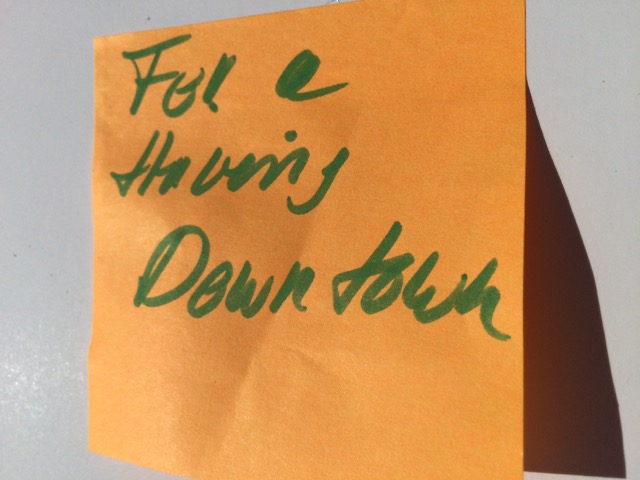 For a
Having
Downtown